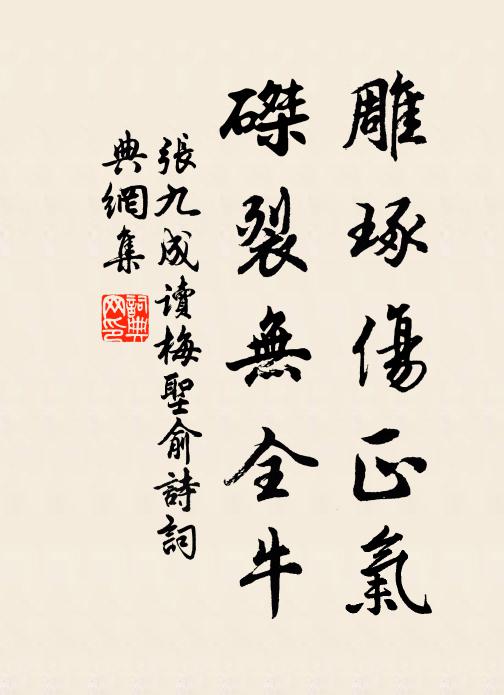 雕琢傷正氣
磔裂無全牛
張九成讀梅聖俞詩詞
典網集
詞典網印